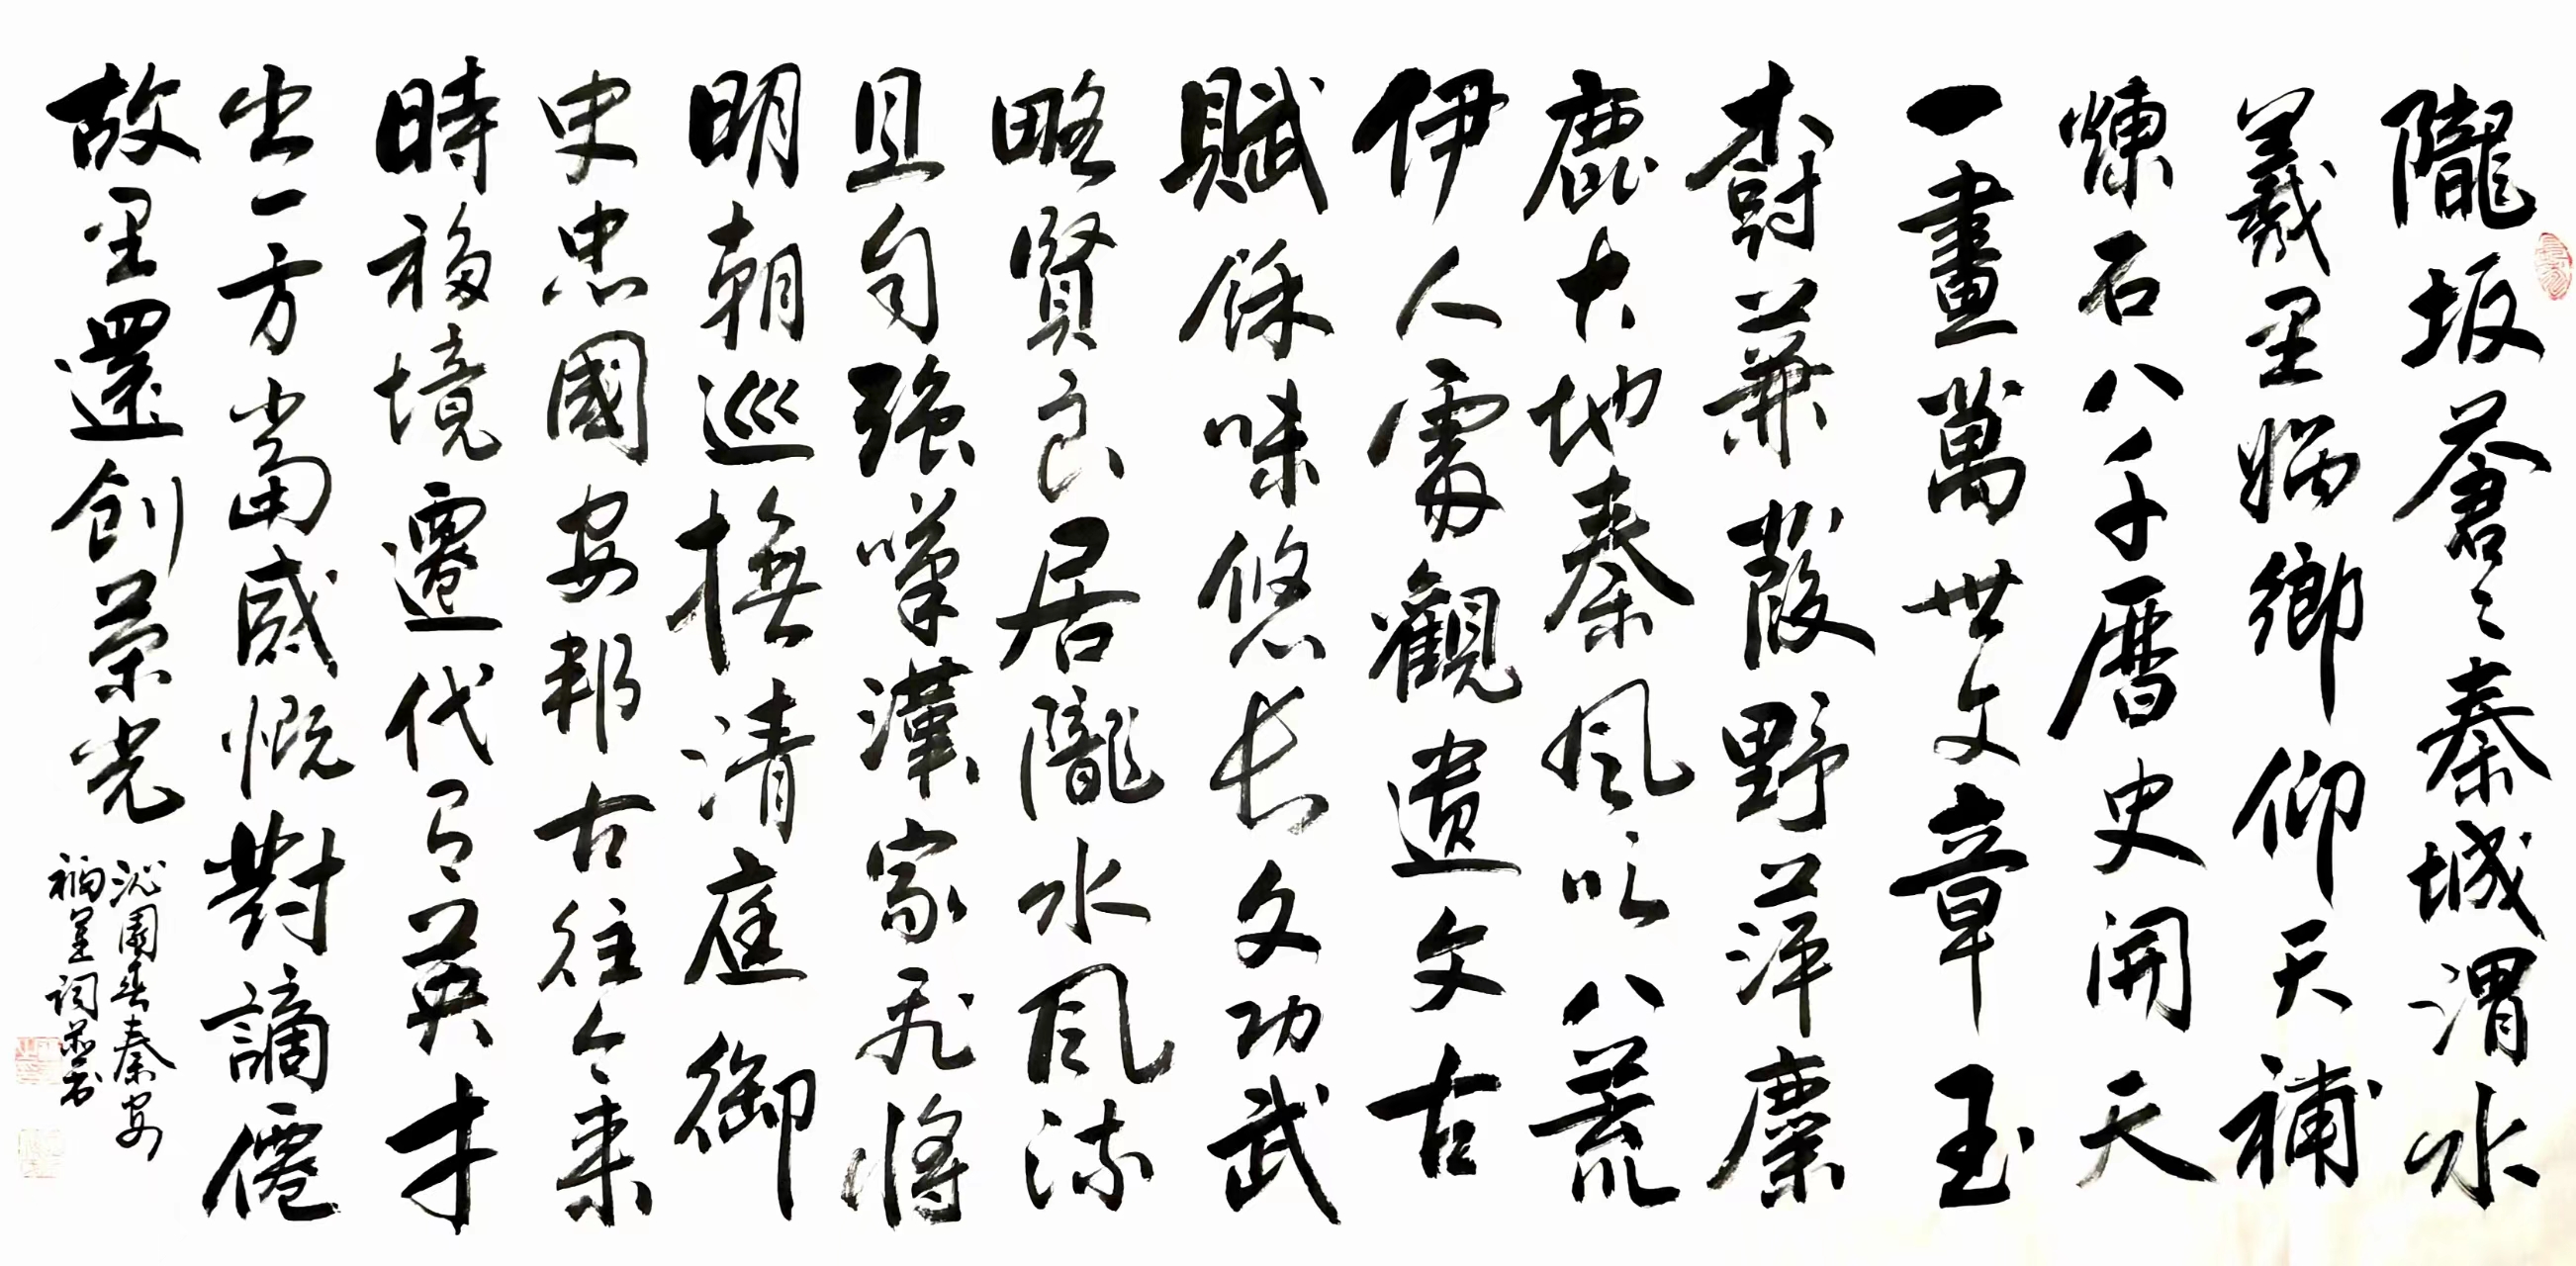 隴坂蒼々秦城渭水
羲里媧鄉仰天補
煉石八千曆史開天
一畫萬世文章玉
樹蒹葭野苹麋
鹿大地秦風吹八荒
伊人處觀遺文古
賦餘味悠長文功武
略賢良居隴水風流
且自強嘆漢家飛將
明朝巡撫清庭御
史忠國安邦古往今来
時移境遷代有英才
出一方當感慨對謫僊
故里還創榮光
沁園春秦安
詞並書